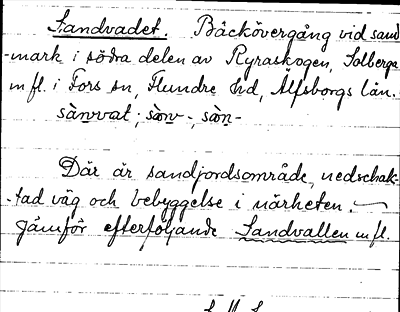 Sandvadet. Bäckövergång vid sand
-mark i södra delen av Ryraskogen, Solberga
m fl. i Fors sn, Flundre hd, Älfsborgs län.
sànvat; sàn-, sàn-
Där är sandjordsområde, nedschak-
-tad väg och bebyggelse i närheten.
Jämför efterföljande Sandvallen m fl.